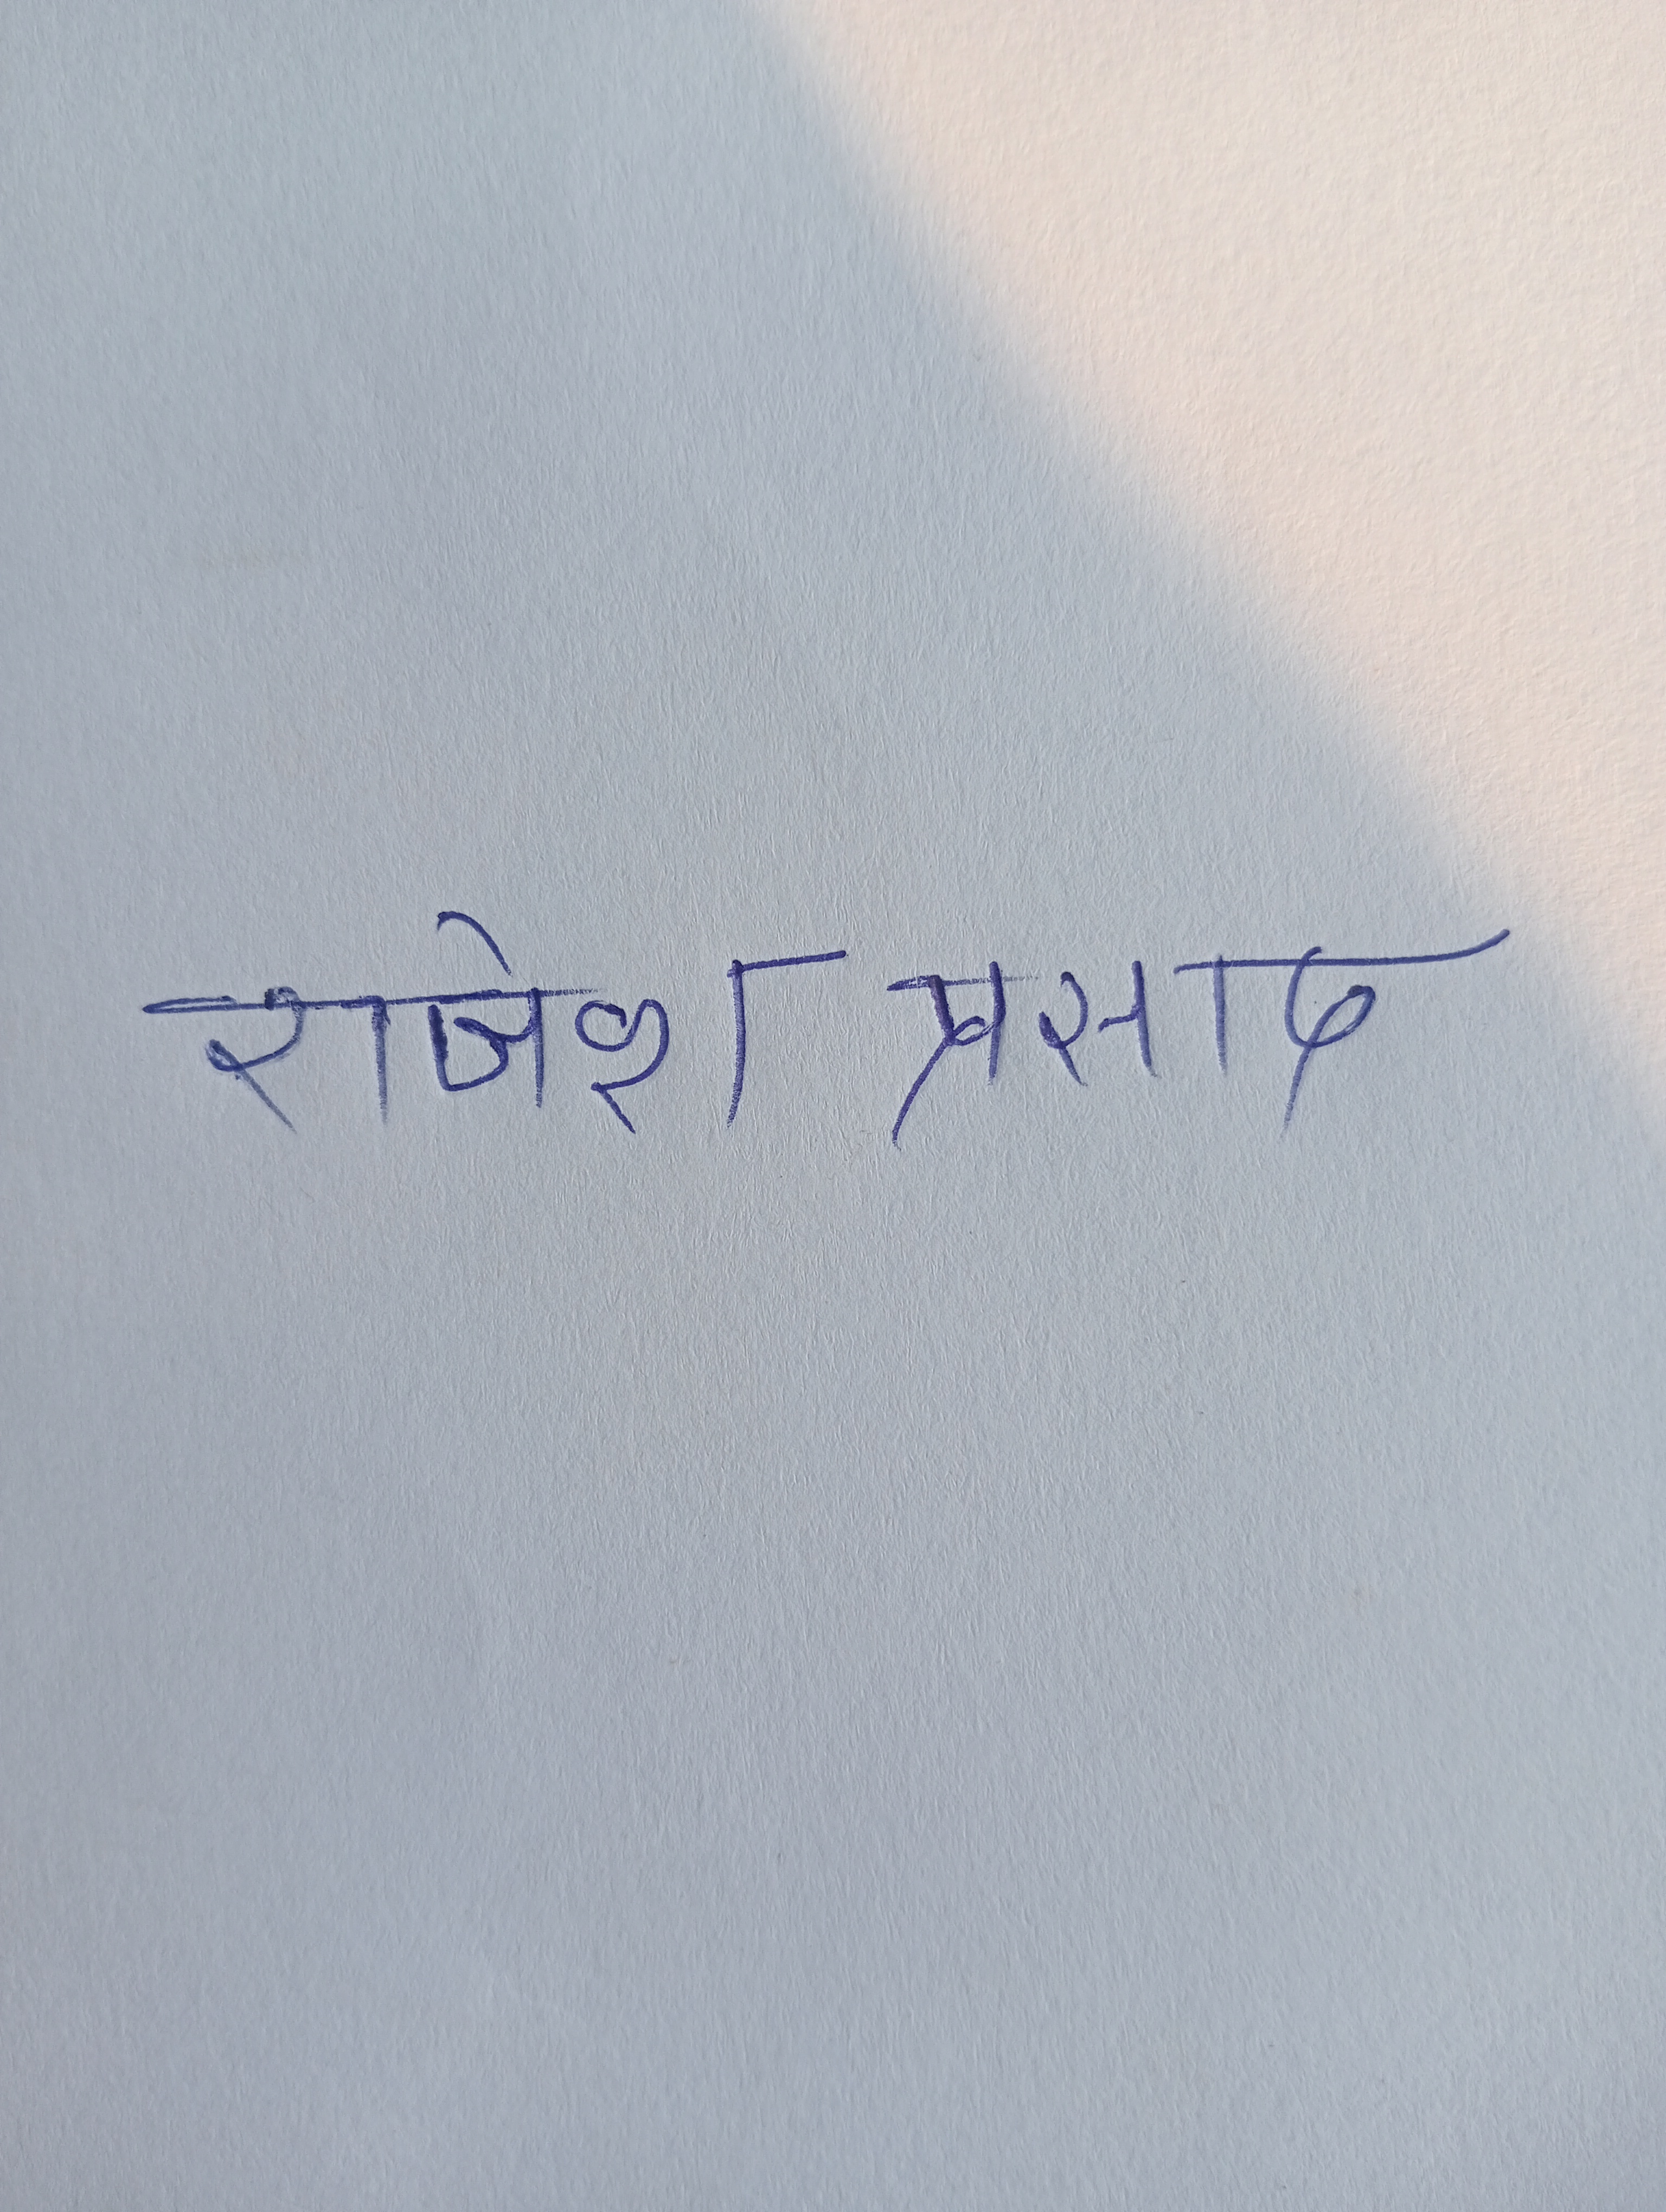 राजेश प्रसाद